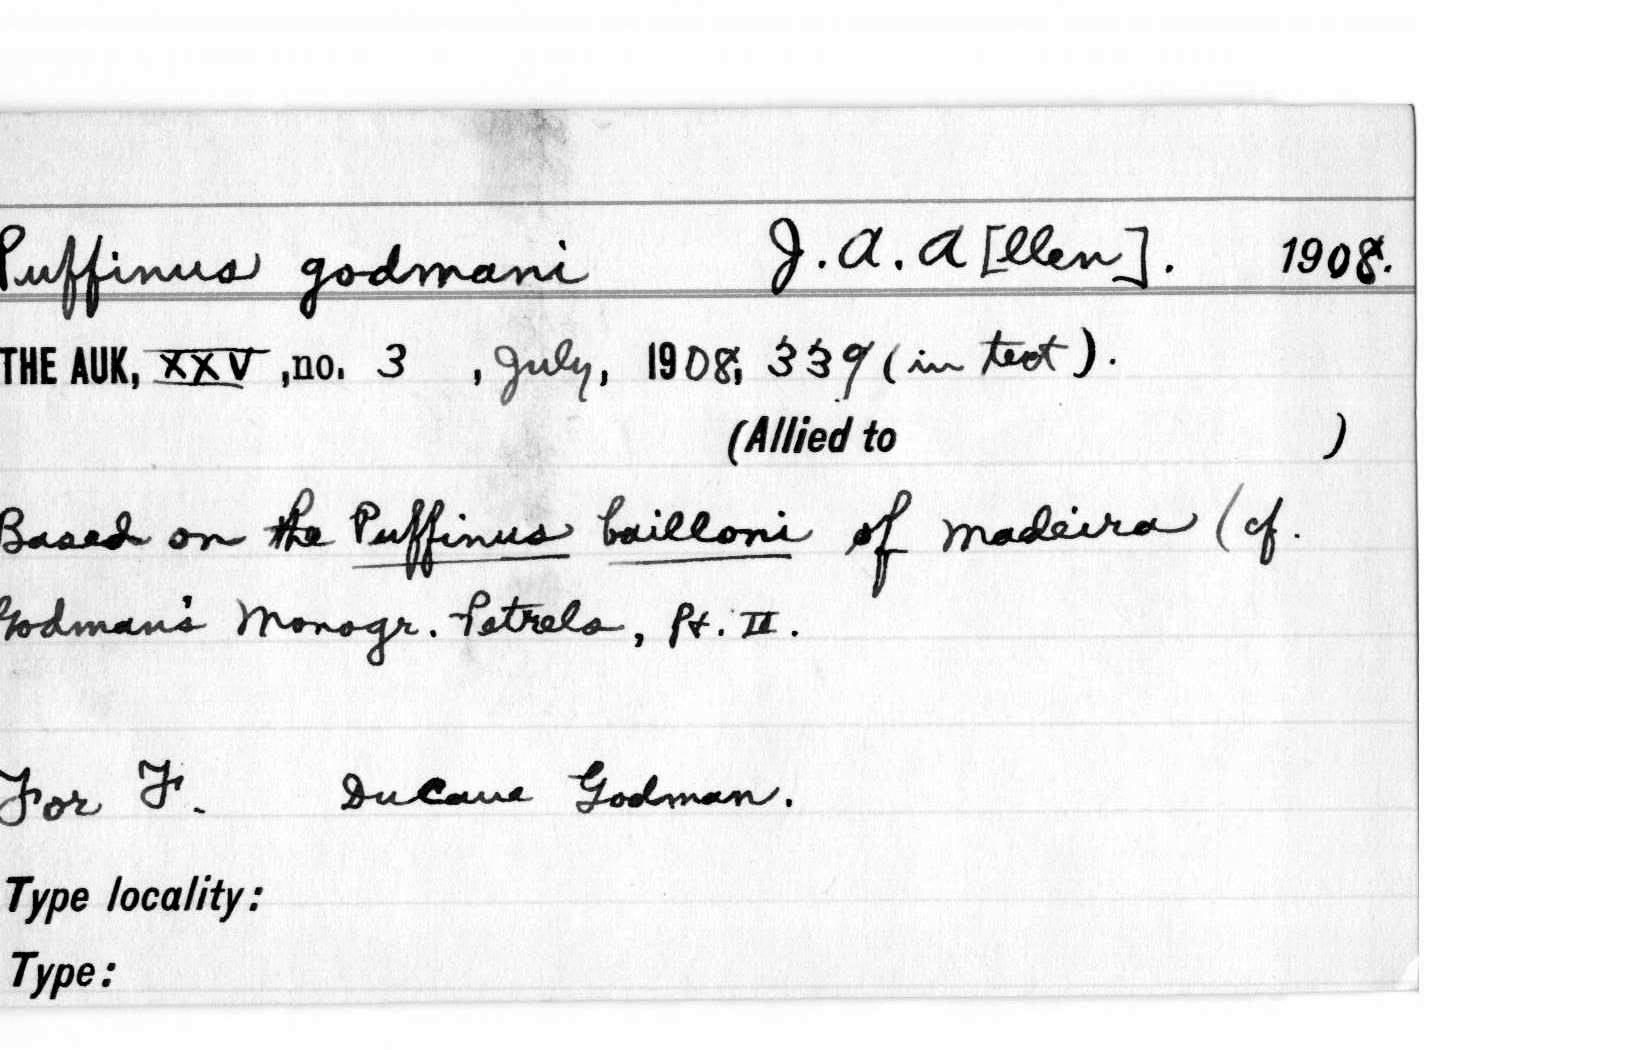 Puffinus godmani J. A. A[llen]. 1908.
THE AUK, XXV, no. 3, July, 1908, 339 (in text).
(Allied to )
Based on the Puffinus bailloni of Madeira (cf.
Godman's Monogr. Petrels, Pt. II.
For F. DuCane Godman.
Type locality:
Type: